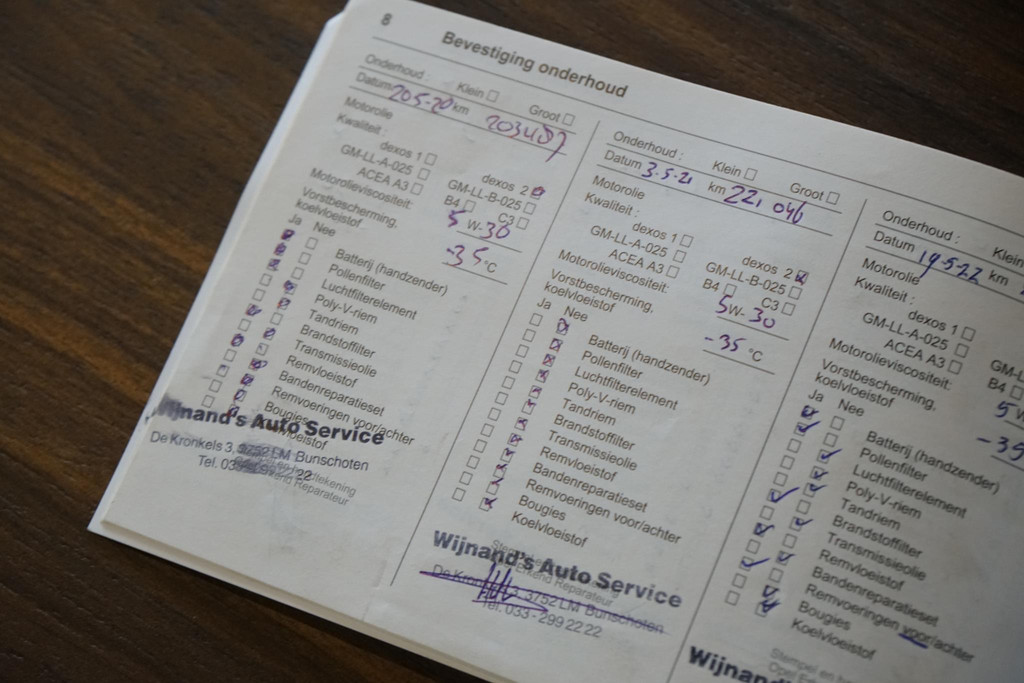 8
Bevestiging onderhoud
Onderhoud : Klein Groot
Datum 205-20 km 203487
Motorolie
Kwaliteit :
dexos 1 dexos 2
GM-LL-A-025 GM-LL-B-025
ACEA A3 B4 C3
Motorolieviscositeit: 5 W-30
Vorstbescherming,
koelvloeistof -35 °C
Ja Nee
Batterij (handzender)
Pollenfilter
Luchtfilterelement
Poly-V-riem
Tandriem
Brandstoffilter
Transmissieolie
Remvloeistof
Bandenreparatieset
Remvoeringen voor/achter
Bougies
Wijnand's Auto Service
De Kronkels 3, 3752 LM Bunschoten
Tel. 033 - 299 22 22
Reparateur
Onderhoud : Klein Groot
Datum 3-5-21 km 221 046
Motorolie
Kwaliteit :
dexos 1 dexos 2
GM-LL-A-025 GM-LL-B-025
ACEA A3 B4 C3
Motorolieviscositeit: 5 W- 30
Vorstbescherming,
koelvloeistof -35 °C
Ja Nee
Batterij (handzender)
Pollenfilter
Luchtfilterelement
Poly-V-riem
Tandriem
Brandstoffilter
Transmissieolie
Remvloeistof
Bandenreparatieset
Remvoeringen voor/achter
Bougies
Koelvloeistof
Wijnand's Auto Service
Erkend Reparateur
De Kronkels 3, 3752 LM Bunschoten
Tel. 033 - 299 22 22
Onderhoud : Klein
Datum 19-5-22 km
Motorolie
Kwaliteit :
dexos 1
GM-LL-A-025 GM-L
ACEA A3 B4
Motorolieviscositeit: 5
Vorstbescherming,
koelvloeistof -35
Ja Nee
Batterij (handzender)
Pollenfilter
Luchtfilterelement
Poly-V-riem
Tandriem
Brandstoffilter
Transmissieolie
Remvloeistof
Bandenreparatieset
Remvoeringen voor/achter
Bougies
Koelvloeistof
Stempel en
Wijnan